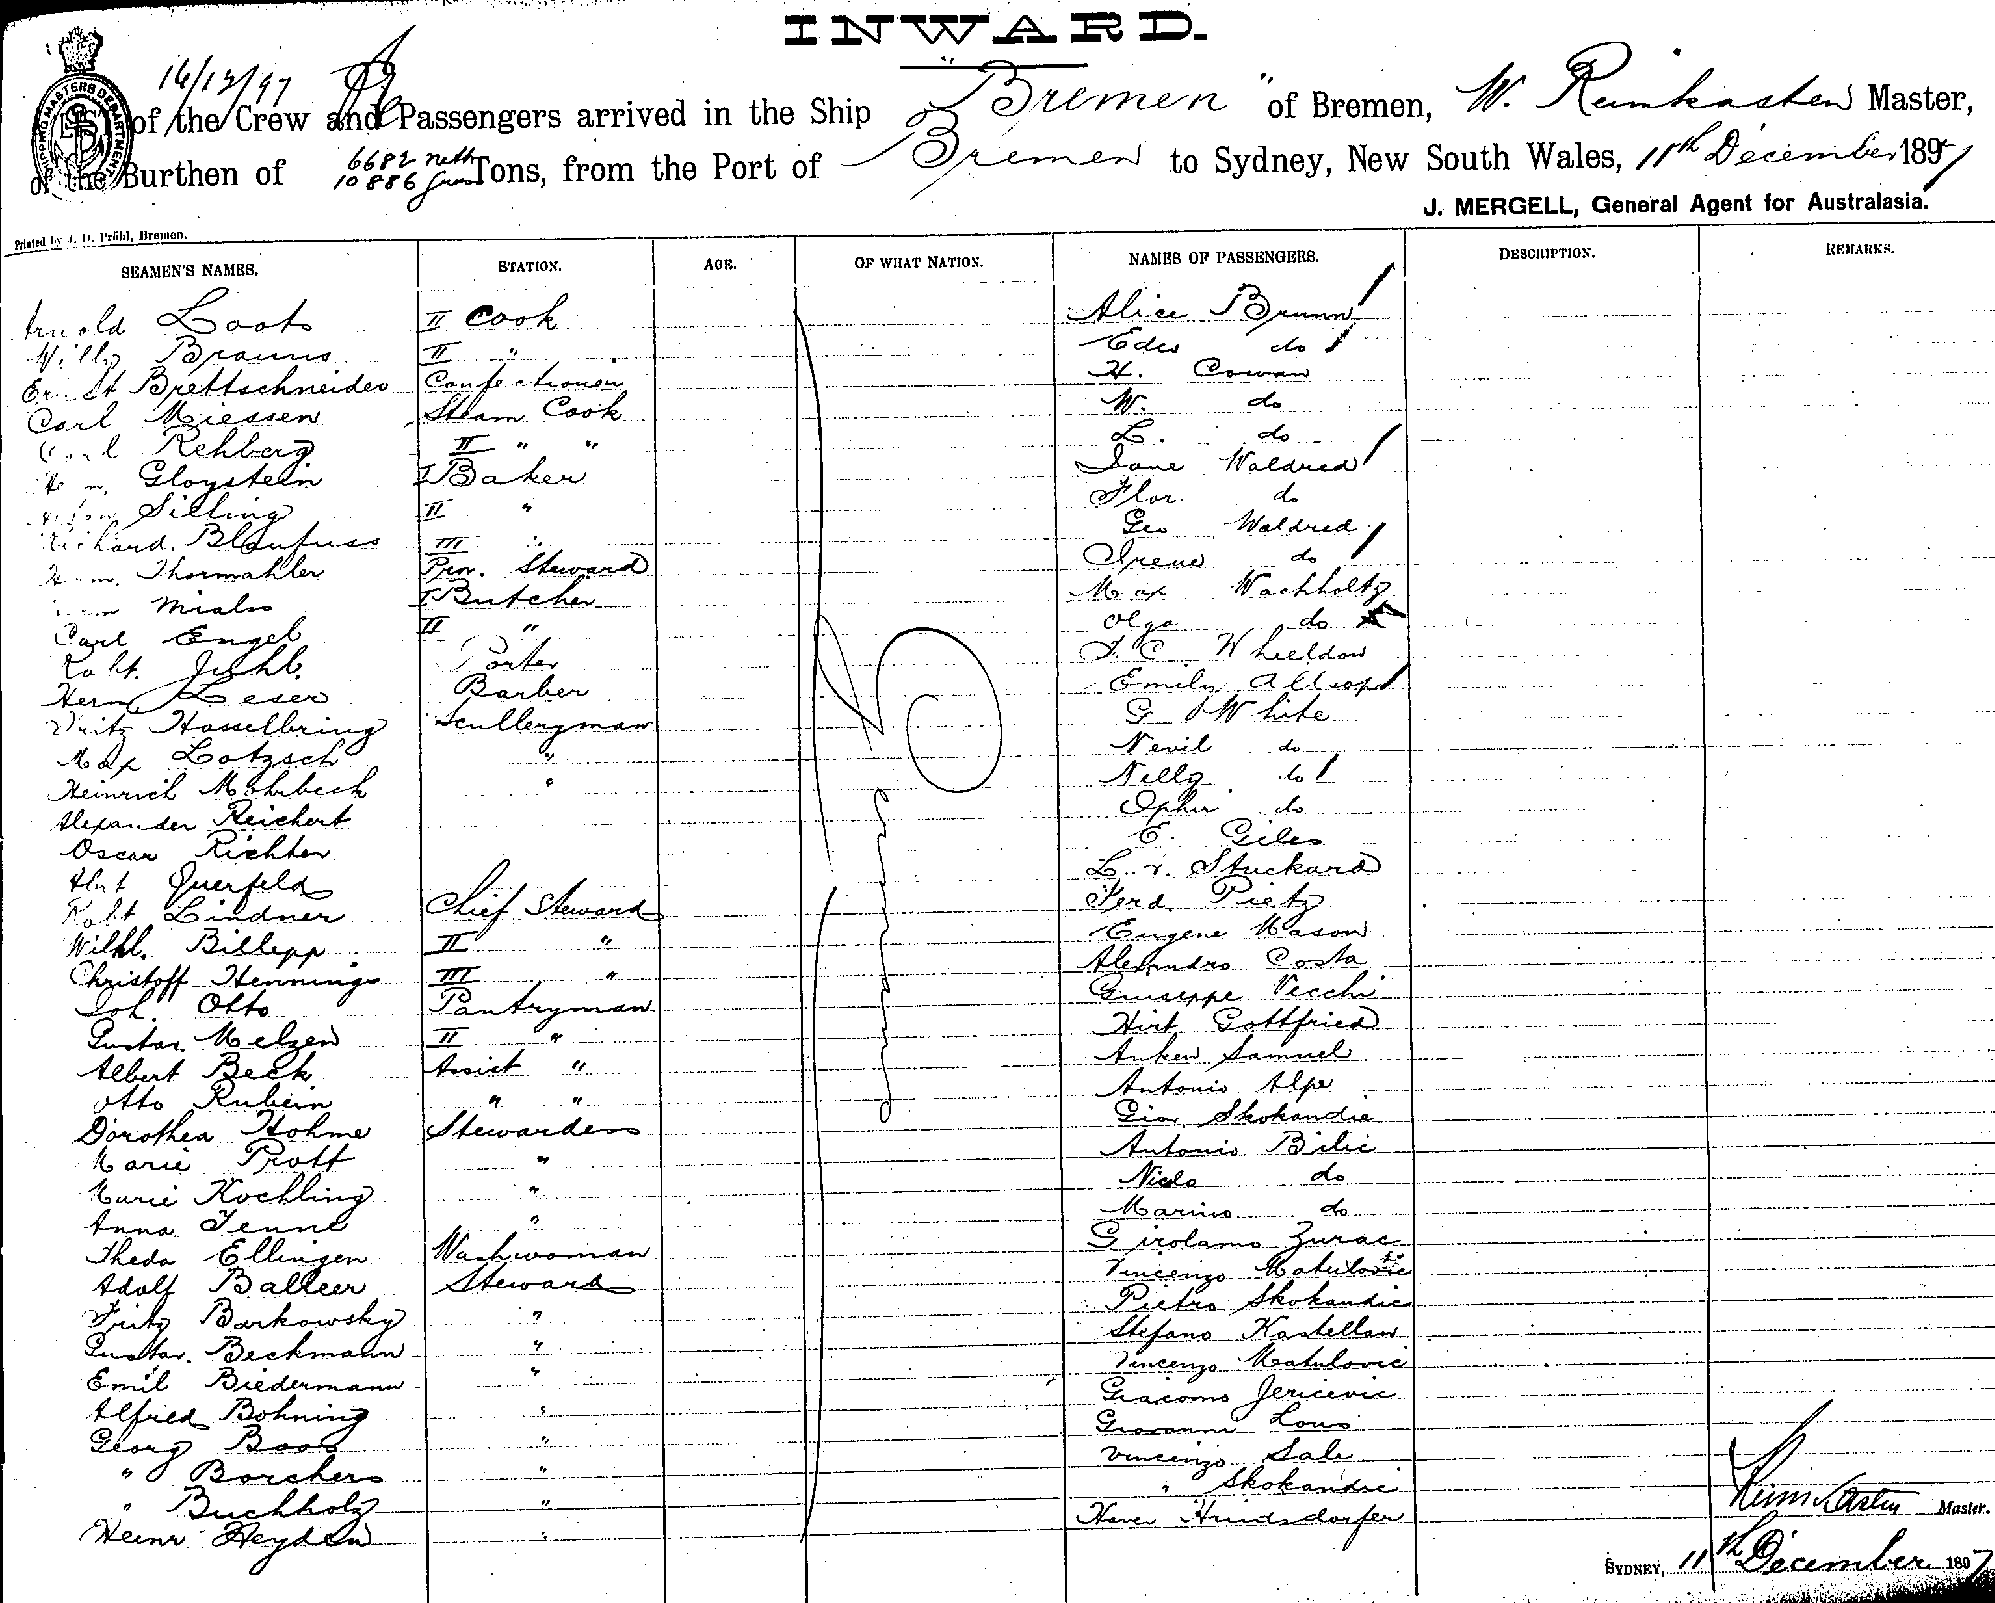 INWARD.
16/12/97
of the Crew and Passengers arrived in the Ship "Bremen" of Bremen, W. Reimkasten Master,
of the Burthen of 6682 nett 10886 gross Tons, from the Port of Bremen to Sydney, New South Wales, 11th December 1897
J. MERGELL, General Agent for Australasia.
Printed by J. D. Pröhl, Bremen.
SEAMEN'S NAMES. STATION. AGE. OF WHAT NATION. NAMES OF PASSENGERS. DESCRIPTION. REMARKS.
Arnold Loots II Cook Alice Brunn
Willy Brauns II " Edes do
Ernst Brettschneider Confectioner H. Cowan
Carl Miessen Steam Cook W. do
Carl Rehberg II " " L. do
Gloystein I Baker Jane Waldred
Silling II " Flor. do
Richard Blaufuss III " Geo Waldred
Herm. Thormahler Prov. Steward Irene do
I Butcher Max Wachholtz
Carl Engel II " Olga do
Robt. Porter Wheeldon
Herm Leser Barber Emily Allsop
Fritz Hasselbring Sculleryman G White
Max Lotzsch " Nevil do
Heinrich Mohrbeck " Nelly do
Alexander Reichert Ophir do
Oscar Richter E. Giles
Albt Querfeld L. v. Stuckard
Robt Lindner Chief Steward Ferd. Pietz
Wilhl. Billepp II " Eugene Mason
Christoff Hennings III " Alexandro Costa
Joh. Otto Pantryman Guiseppe Vecchi
Gustav. Melzen II " Hirt Gottfried
Albert Beck Assist " Anken Samuel
Otto Rubein " " Antonio Alpe
Dorothea Hohme Stewardess Giov Skokandic
Marie Prott " Antonio Bilic
Marie Kochling " Nicola do
Anna Jenne " Marino do
Theda Ellingen Washwoman Girolamo Zurac
Adolf Balleer Steward Vincenzo Matulovic
Fritz Barkowsky " Pietro Skokandic
Gustav. Beckmann " Stefano Kastellan
Emil Biedermann " Vincenzo Matulovic
Alfred Bohning " Giacomo Jericevic
Georg Boos " Giovanni Lous
" Borchers " Vincenzo Sale
" Buchholz " " Skokandic
Heinr Heyden " Xaver Hundsdorfer
Reimkasten Master.
SYDNEY, 11th December 1897